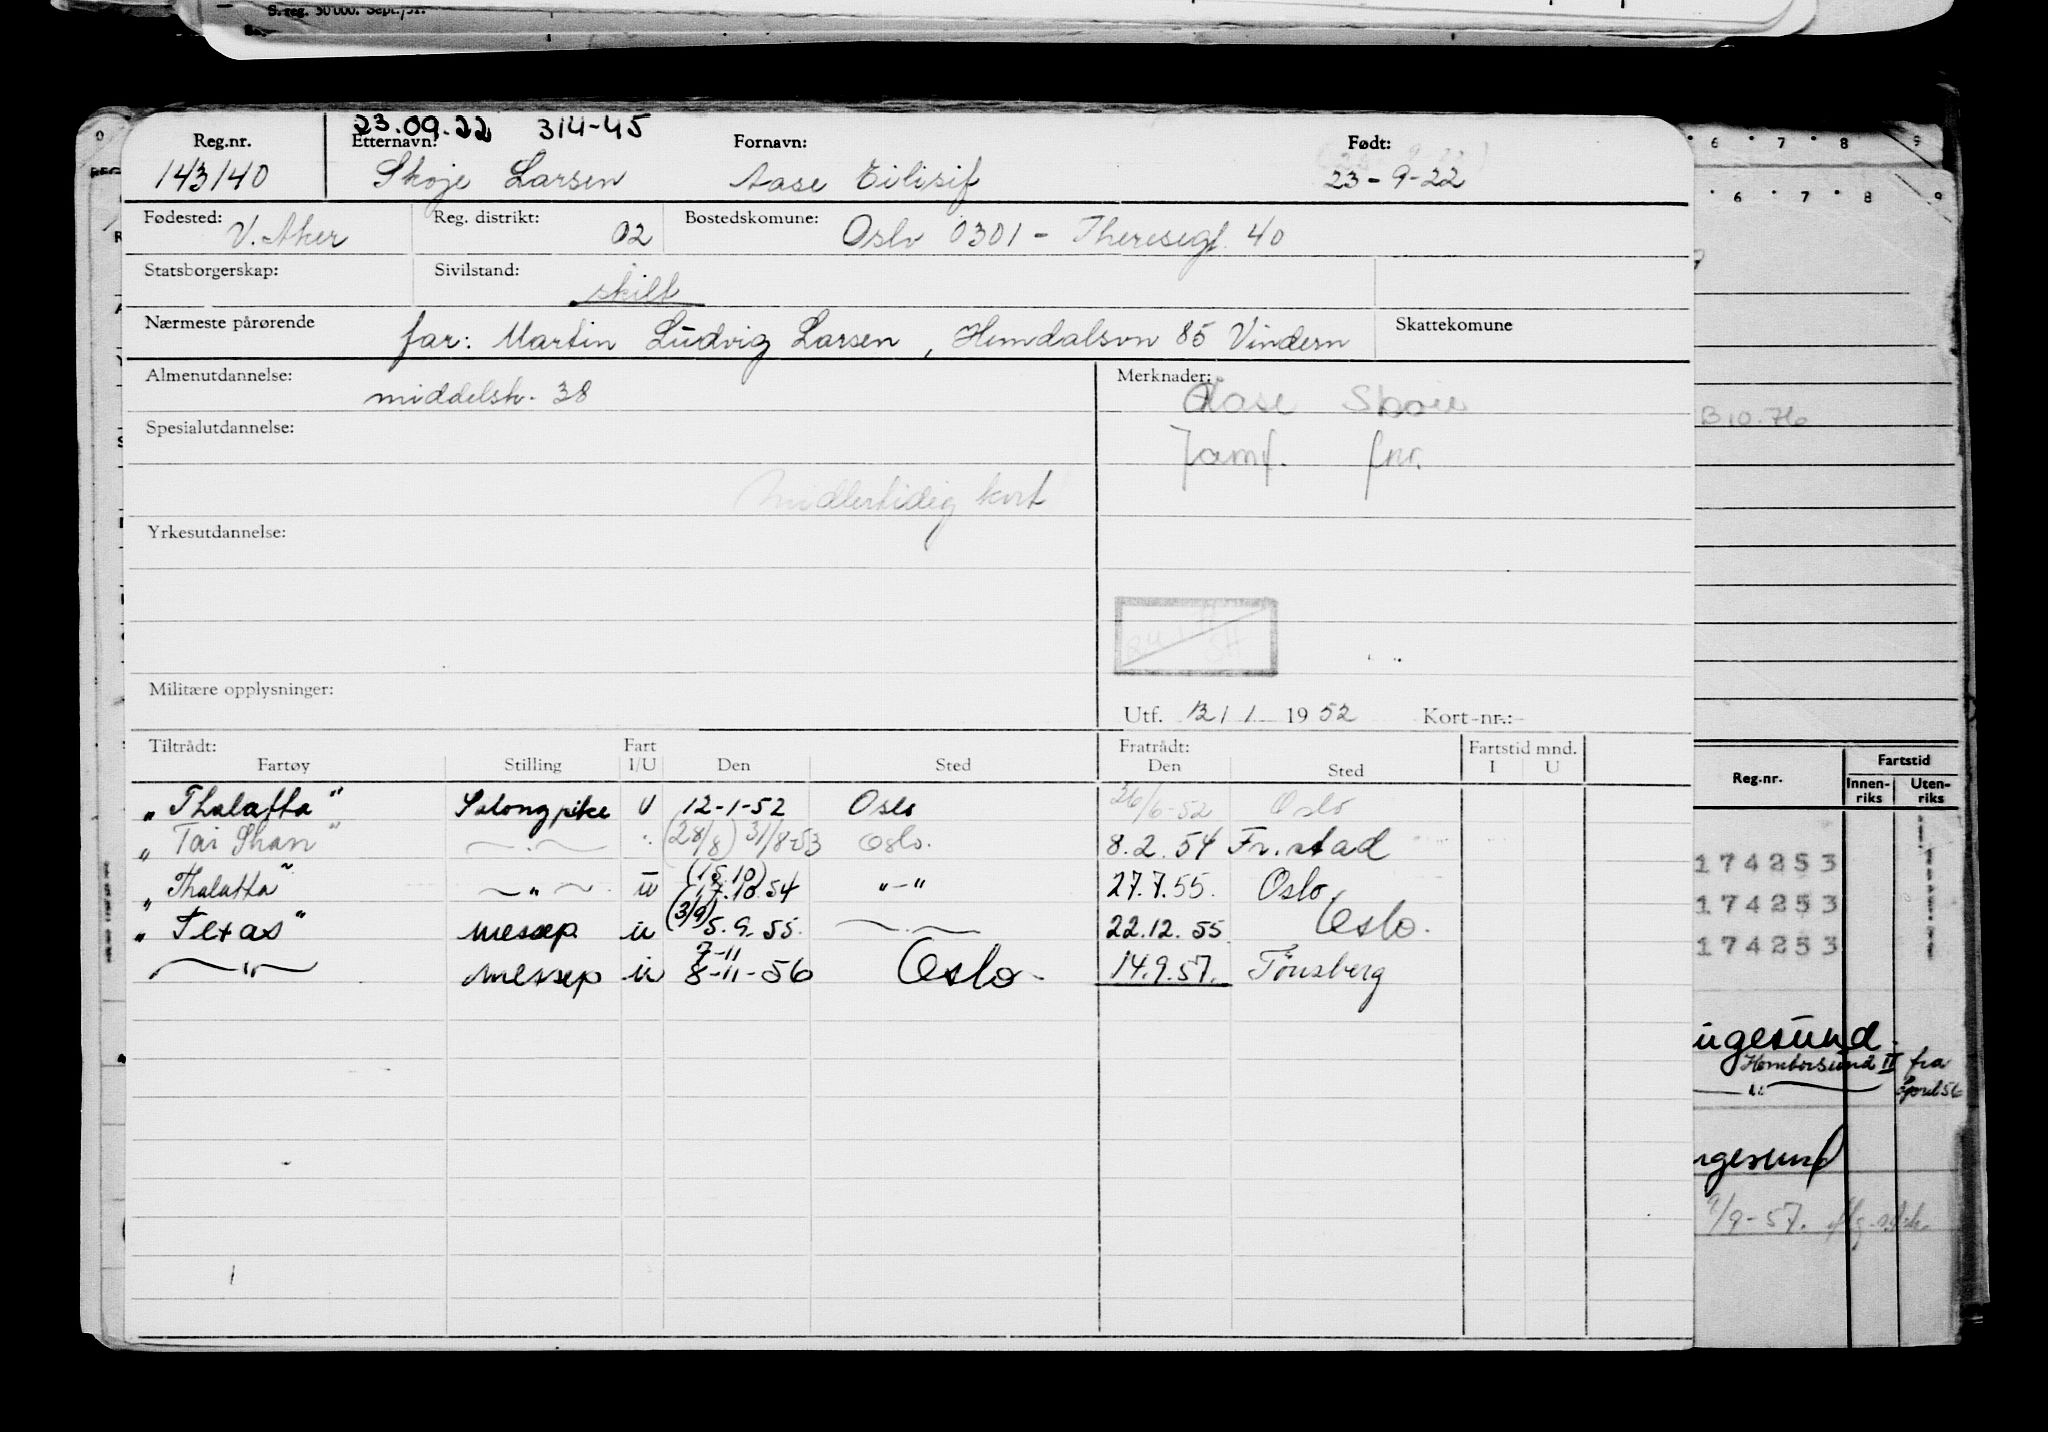 S. reg. 50 000. Sept./51.
23.09.22 314-45
Reg.nr. Etternavn: Fornavn: Født:
143140 Skoje Larsen Aase Eilisif 23-9-22
Fødested: V. Aker Reg. distrikt: 02 Bostedskomune: Oslo 0301 - Theresegt. 40
Statsborgerskap: Sivilstand: skilt
Nærmeste pårørende far: Martin Ludvig Larsen, Hemdalsvn 85 Vindern Skattekomune
Almenutdannelse: middelsk. 38 Merknader: Aase
Spesialutdannelse: Jamf. fnr.
Midlertidig kort
Yrkesutdannelse:
Militære opplysninger:
Utf. 12/1 1952 Kort-nr.:-
Tiltrådt: Fart Fratrådt: Fartstid mnd.
Fartøy Stilling I/U Den Sted Den Sted I U
„Thalatta" Salongpike U 12-1-52 Oslo 26/6-52 Oslo
„Tai Shan" —〃— (28/8) 31/8-53 Oslo. 8.2.54 Fr.stad
„Thalatta" —〃— u (15.10) 17.10.54 "-" 27.7.55. Oslo
„Texas" messep u (3/9) 5.9.55. —〃— 22.12.55 Oslo.
—〃— messep u 7-11 8-11-56 Oslo 14.9.57. Tönsberg
6 7 8 9
6 7 8 9
B 10.76
Reg.nr. Fartstid
Innen-riks Uten-riks
174253
174253
174253
ugesund
Homborsund II fra
april 56
ngesund
9/9-57.